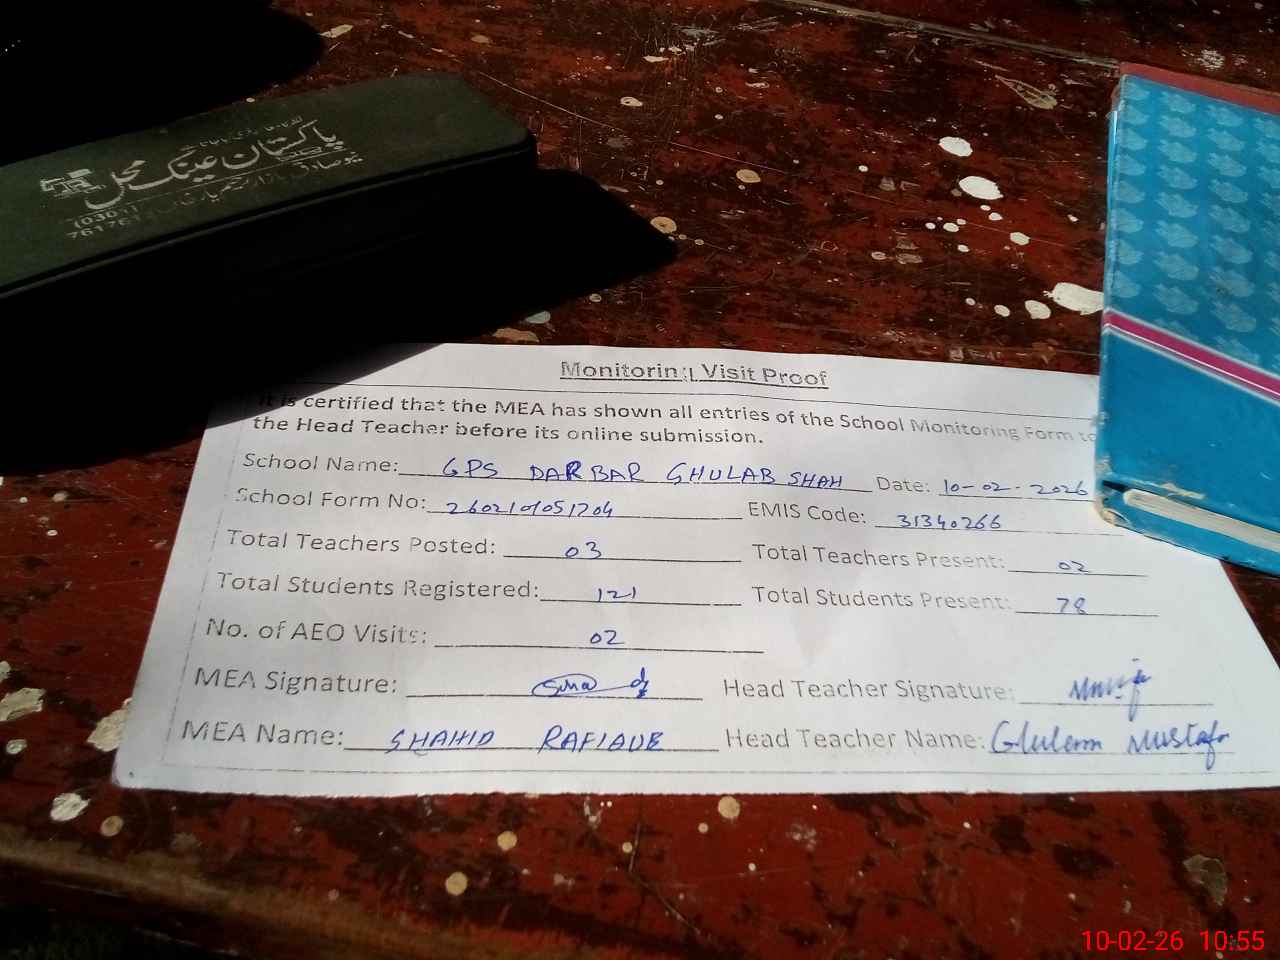 پاکستان عینک محل
Monitoring Visit Proof
It is certified that the MEA has shown all entries of the School Monitoring Form to
the Head Teacher before its online submission.
School Name: GPS DARBAR GHULAB SHAH Date: 10-02-2026
School Form No: 2602101051204 EMIS Code: 31340266
Total Teachers Posted: 03 Total Teachers Present: 02
Total Students Registered: 121 Total Students Present: 78
No. of AEO Visits: 02
MEA Signature: Head Teacher Signature:
MEA Name: SHAHID RAFIQUE Head Teacher Name: Ghulam Mustafa
10-02-26 10:55